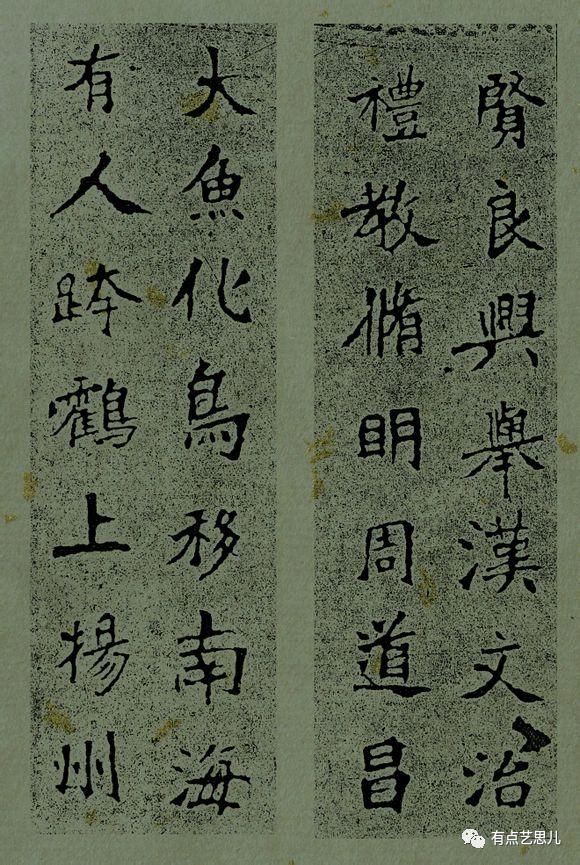 賢良興舉漢文治
禮教脩明周道昌
大魚化鳥移南海
有人跨鶴上揚州
有点艺思儿